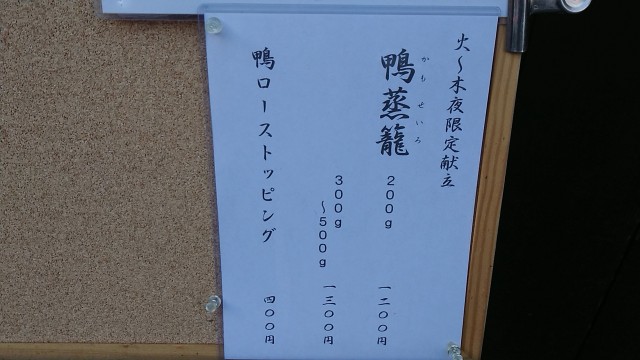 火〜木夜限定献立
鴨蒸籠 200g 一二〇〇円
かも せいろ
300g
〜500g 一三〇〇円
鴨ローストッピング 四〇〇円